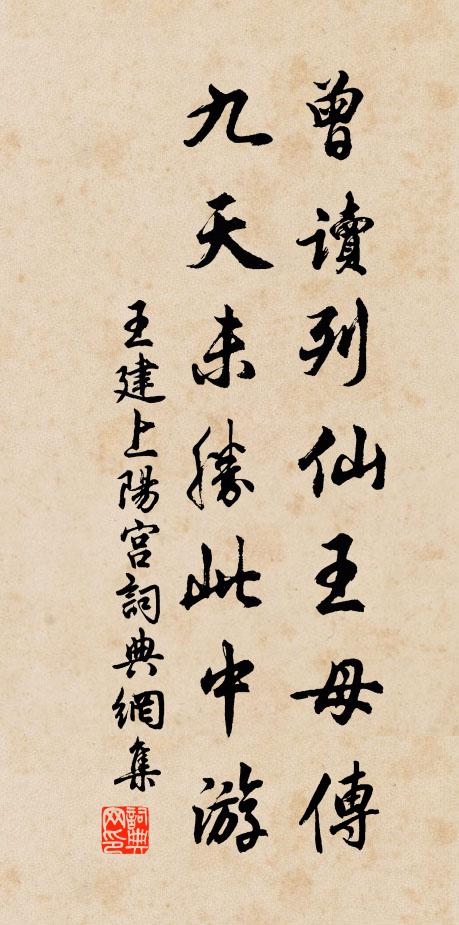 曾讀列仙王母傳
九天未勝此中游
王建上陽宮詞典網集
詞典网印